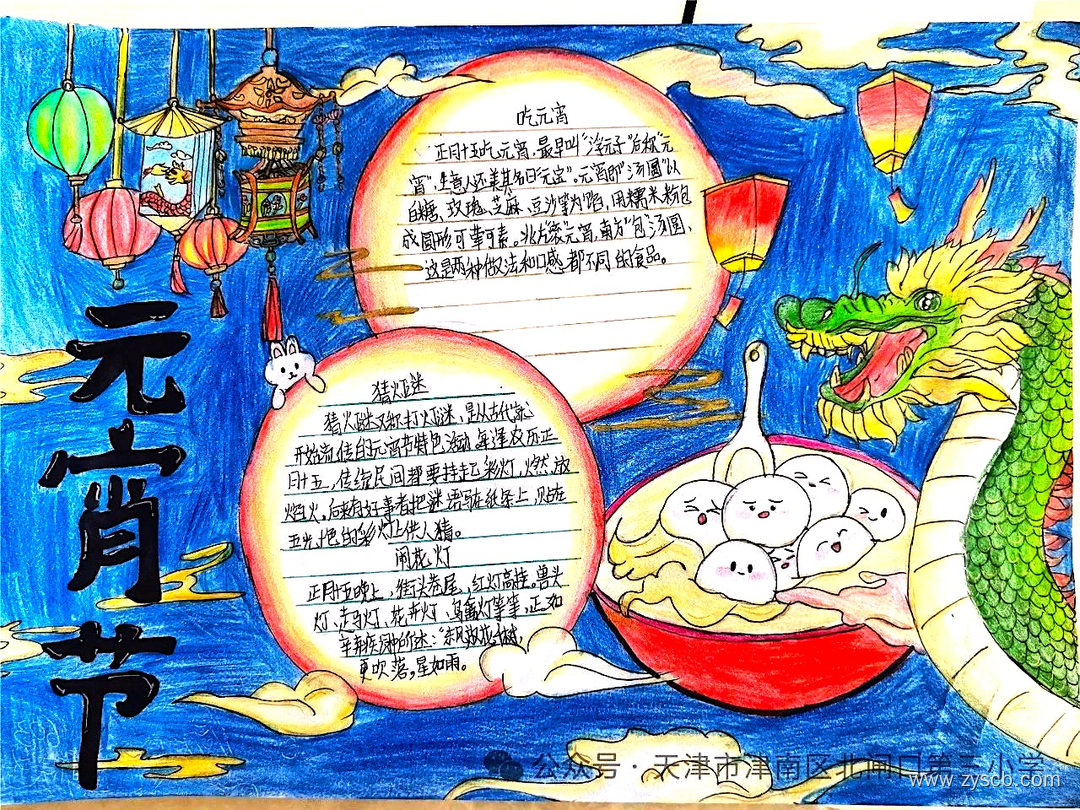 元宵节
吃元宵
正月十五吃元宵,最早叫"浮元子"后称"元
宵",生意人还美其名曰"元宝"。元宵即"汤圆"以
白糖、玫瑰、芝麻、豆沙等为馅,用糯米粉包
成圆形可荤可素。北方"滚"元宵,南方"包"汤圆,
这是两种做法和口感都不同的食品。
猜灯谜
猜灯谜又称打灯谜,是从古代就
开始流传的元宵节特色活动。每逢农历正
月十五,传统民间都要持起彩灯,燃放
焰火。后来有好事者把谜语写在纸条上,贴在
五光十色的彩灯上供人猜。
闹花灯
正月十五晚上,街头巷尾,红灯高挂。兽头
灯、走马灯、花卉灯、鸟禽灯等等,正如
辛弃疾词中所述:"东风夜放花千树,
更吹落,星如雨。
公众号·天津市津南区北闸口第三小学
www.zyscb.com